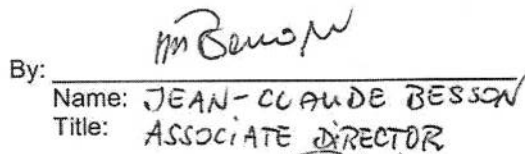 By:
Name: JEAN-CLAUDE BESSON
Title: ASSOCIATE DIRECTOR